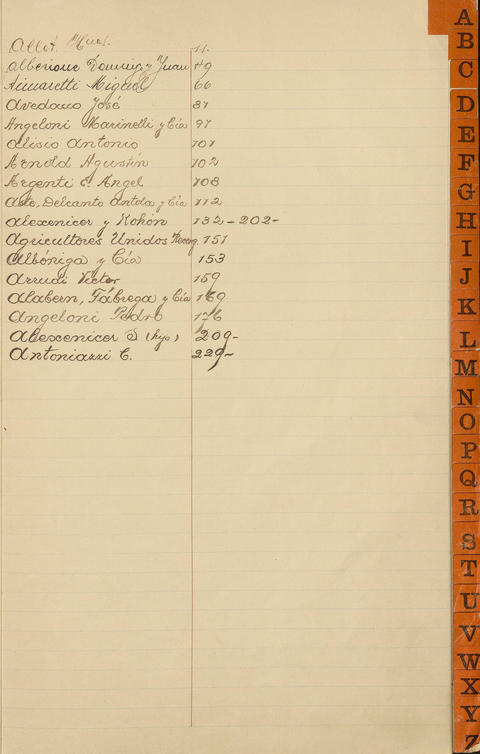 Allot. Hnos. 11.
Alberione Domingo y Juan 49
Aimaretti Miguel 66
Avedano José 87
Angeloni Marinelli y Cía 97
Alisio Antonio 101
Arnold Agustín 102
Argenti E. Angel 108
Delcanto Antola y Cía 112
Alexenicer y Kohón 132-202-
Agricultores Unidos 151
Albóniga y Cía 153
Arrudi Victor 159
Alabern, Fábrega y Cía 169
Angeloni Pedro 176
Alexenicer S (hijo) 209-
Antoniazzi C. 229-
A
B
C
D
E
F
G
H
I
J
K
L
M
N
O
P
Q
R
S
T
U
V
W
X
Y
Z